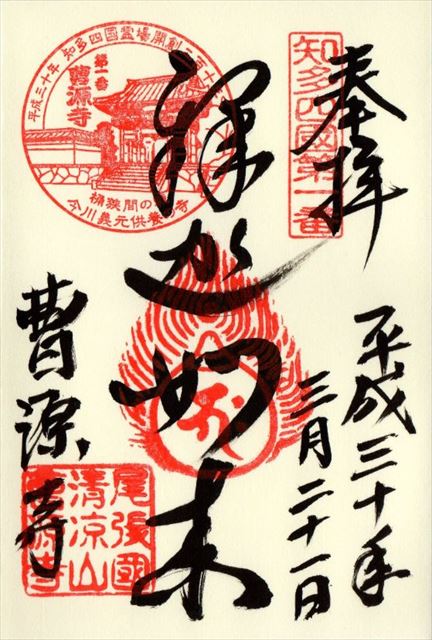 奉拝
知多四國第一番
平成三十年
三月二十一日
釋迦如来
平成三十年 知多四國霊場開創二百十
第一番
曹源寺
桶狭間の
今川義元供養
曹源寺
尾張國
清凉山
曹源寺